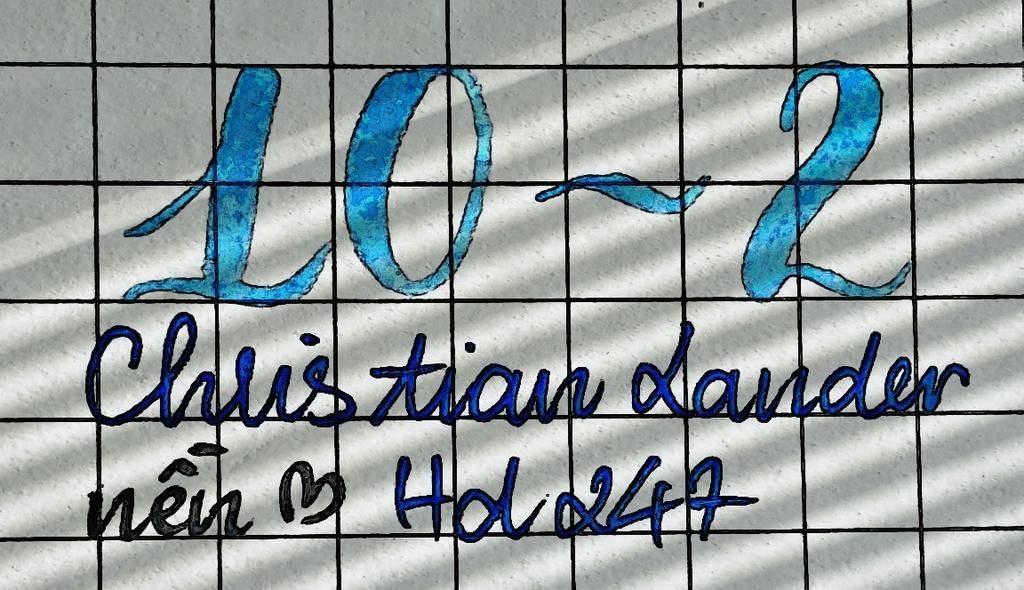 10 ~ 2
Christian Lander
nền ♡ Hd 247